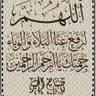 اللهم
ارفع عنا البلاء والوباء
برحمتك يا أرحم الراحمين